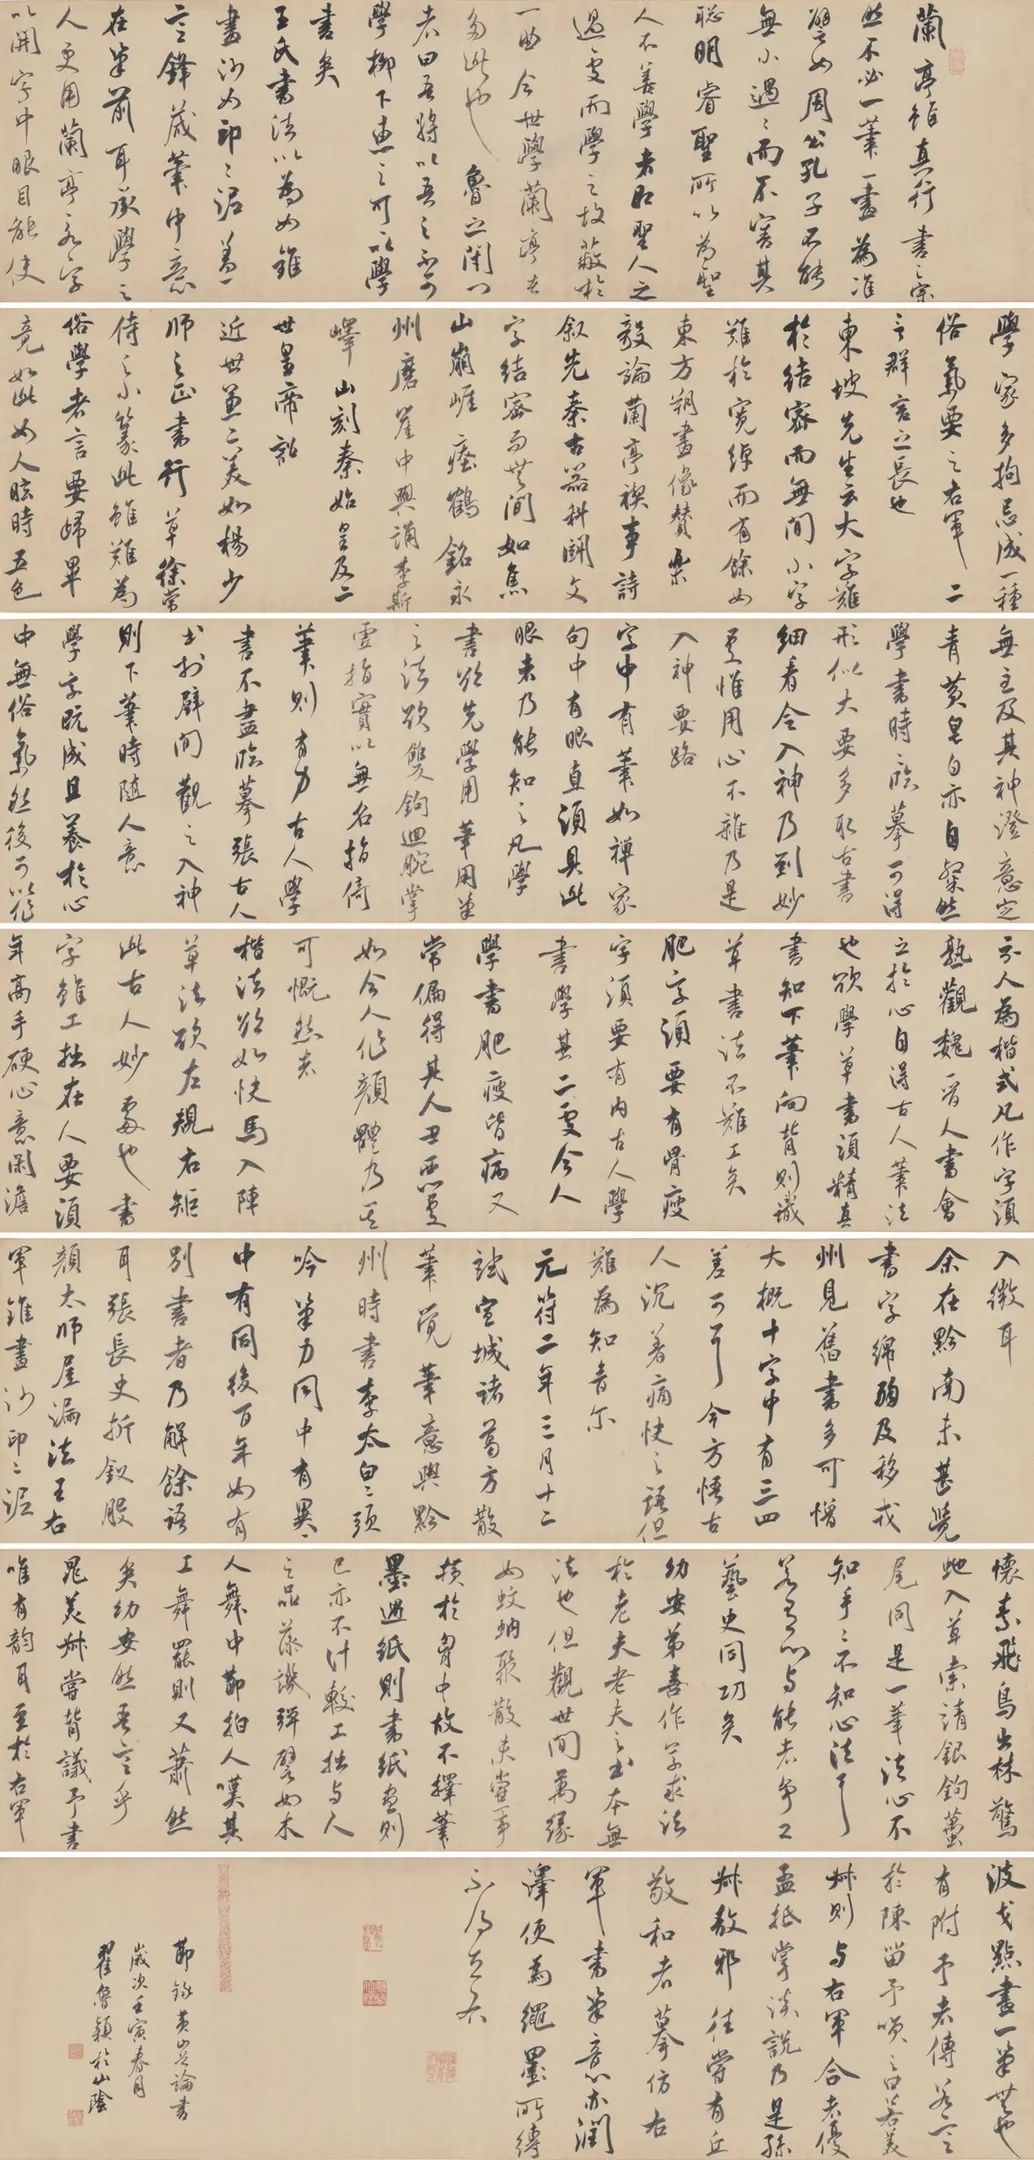 蘭亭雖真行書之宗
然不必一筆一畫為準
譬如周公孔子不能
無小過過而不害其
聰明睿聖所以為聖
人不善學者即聖人之
過處而學之故蔽於
一曲今世學蘭亭者
多此也魯之閉門
者曰吾將以吾之不可
學柳下惠之可以學
書矣
王氏書法以為如錐
畫沙如印印泥蓋
言鋒藏筆中意
在筆前耳承學之
人更用蘭亭永字
以開字中眼目能使
學家多拘忌成一種
俗氣要之右軍二
言群言之長也
東坡先生云大字難
於結密而無間小字
難於寬綽而有餘如
東方朔畫像贊樂
毅論蘭亭禊事詩
叙先秦古器科鬭文
字結密而無間如焦
山崩崖瘞鶴銘永
州磨崖中興頌李斯
嶧山刻秦始皇及二
世皇帝詔
近世兼二美如楊少
師之正書行草徐常
侍之小篆此雖難為
俗學者言要歸畢
竟如此如人眩時五色
無主及其神澄意定
青黃皂白亦自粲然
學書時臨摹可得
形似大要多取古書
細看令入神乃到妙
處惟用心不雜乃是
入神要路
字中有筆如禪家
句中有眼直須具此
眼者乃能知之凡學
書欲先學用筆用筆
之法欲雙鉤迴腕掌
虛指實以無名指倚
筆則有力古人學
書不盡臨摹張古人
書於壁間觀之入神
則下筆時隨人意
學字既成且養於心
中無俗氣然後可以作
示人為楷式凡作字須
熟觀魏晉人書會
之於心自得古人筆法
也欲學草書須精真
書知下筆向背則識
草書法不難工矣
肥字須要有骨瘦
字須要有肉古人學
書學其二處今人
學書肥瘦皆病又
常偏得其人醜惡處
如今人作顏體乃其
可慨然者
楷法欲如快馬入陣
草法欲左規右矩
此古人妙處也書
字雖工拙在人要須
年高手硬心意閑澹
入微耳
余在黔南未甚覺
書字綿弱及移戎
州見舊書多可憎
大概十字中有三四
差可耳今方悟古
人沉著痛快之語但
難為知音爾
元符二年三月十二
試宣城諸葛方散
筆覺筆意與黔
州時書李太白白頭
吟筆力同中有異異
中有同後百年如有
別書者乃解餘語
耳張長史折釵股
顏太師屋漏法王右
軍錐畫沙印印泥
懷素飛鳥出林驚
蛇入草索靖銀鉤蠆
尾同是一筆法心不
知手手不知心法耳
若有心與能者爭工
藝史同功矣
幼安弟喜作草求法
於老夫老夫之書本無
法也但觀世間萬緣
如蚊蚋聚散未嘗一事
橫於胷中故不擇筆
墨遇紙則書紙盡則
已亦不計較工拙與人
之品藻譏彈譬如木
人舞中節拍人嘆其
工舞罷則又蕭然
矣幼安然吾言乎
晁美叔嘗背議予書
唯有韻耳至於右軍
波戈點畫一筆無也
有附予者傳若言
於陳留予唉之曰若美
叔則與右軍合者優
孟抵掌談說乃是孫
叔敖邪往嘗有丘
敬和者摹仿右
軍書筆意亦潤
澤便為繩墨所縛
不得左右
節錄黃山谷論書
歲次壬寅春月
翟魯穎於山陰